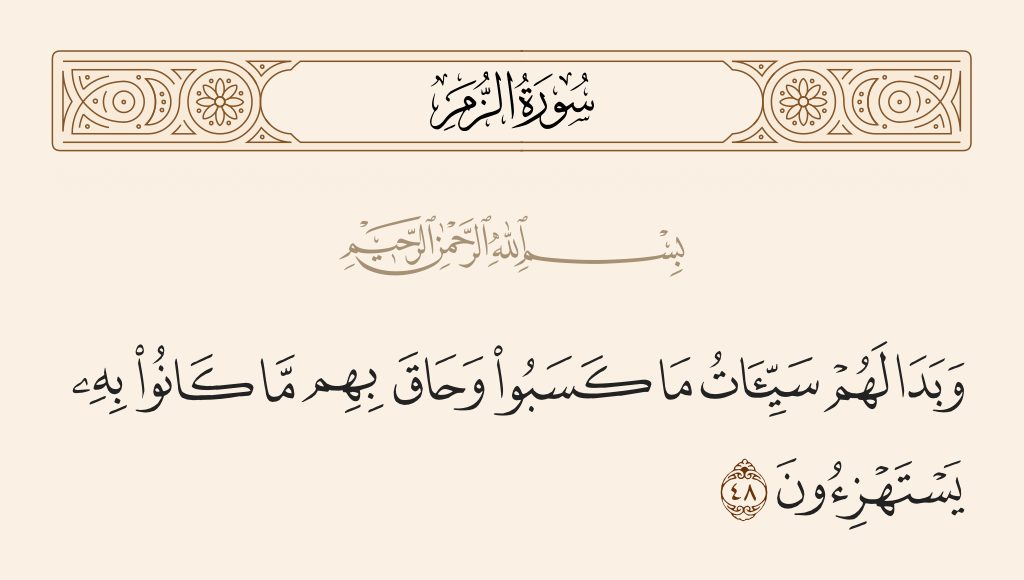 سُورَةُ الزُّمَرِ
بِسْمِ ٱللَّهِ ٱلرَّحْمَٰنِ ٱلرَّحِيمِ
وَبَدَا لَهُمْ سَيِّـَٔاتُ مَا كَسَبُوا۟ وَحَاقَ بِهِم مَّا كَانُوا۟ بِهِۦ
يَسْتَهْزِءُونَ ٤٨